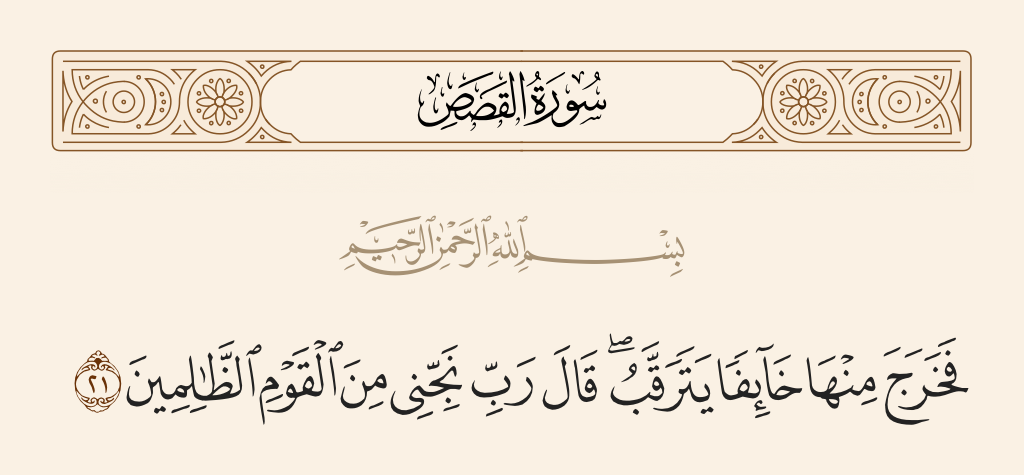 سُورَةُ القَصَصِ
بِسْمِ ٱللَّهِ ٱلرَّحْمَٰنِ ٱلرَّحِيمِ
فَخَرَجَ مِنْهَا خَآئِفًا يَتَرَقَّبُ ۖ قَالَ رَبِّ نَجِّنِى مِنَ ٱلْقَوْمِ ٱلظَّٰلِمِينَ ٢١